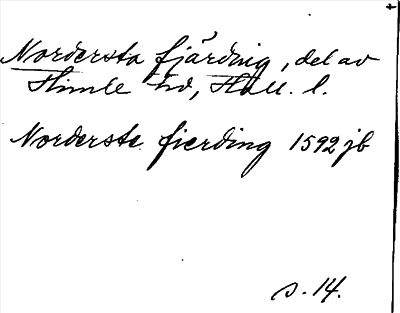 Nordersta fjärding, del av
Himle hd, Hall. l.
Norderste fierding 1592 jb
s. 14.